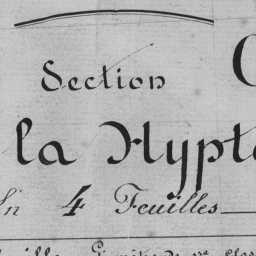 Section
la Hypt
En 4 Feuilles